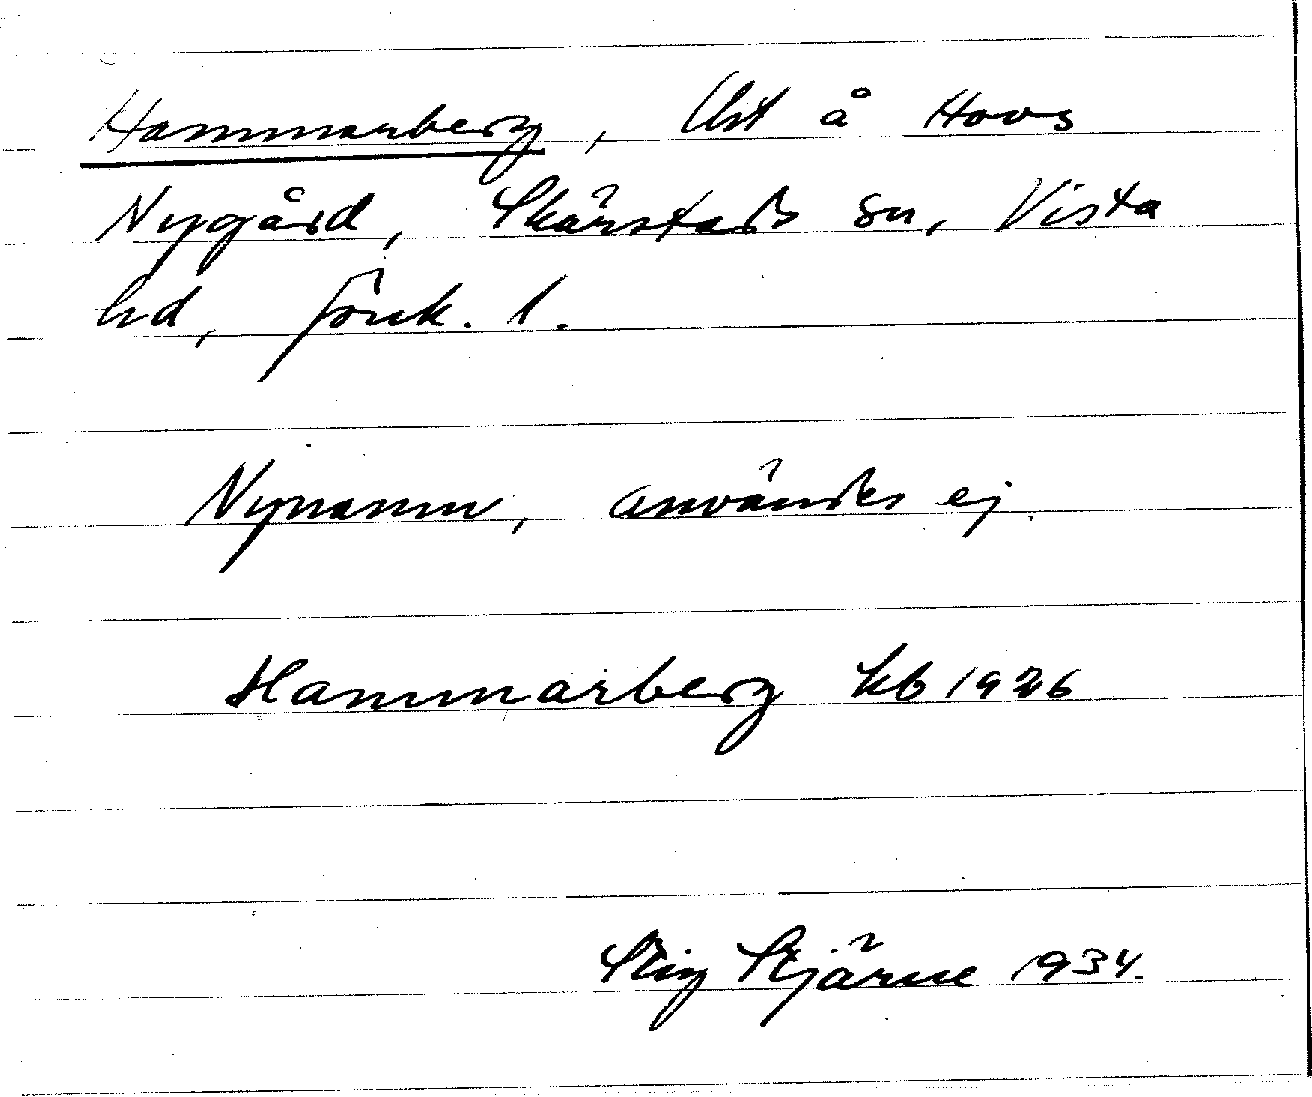 Hammarberg, lht å Hovs
Nygård, Skärstads sn, Vista
hd, Jönk. l.
Nynamn, användes ej.
Hammarberg kb 1926
Stig Stjärne 1934.